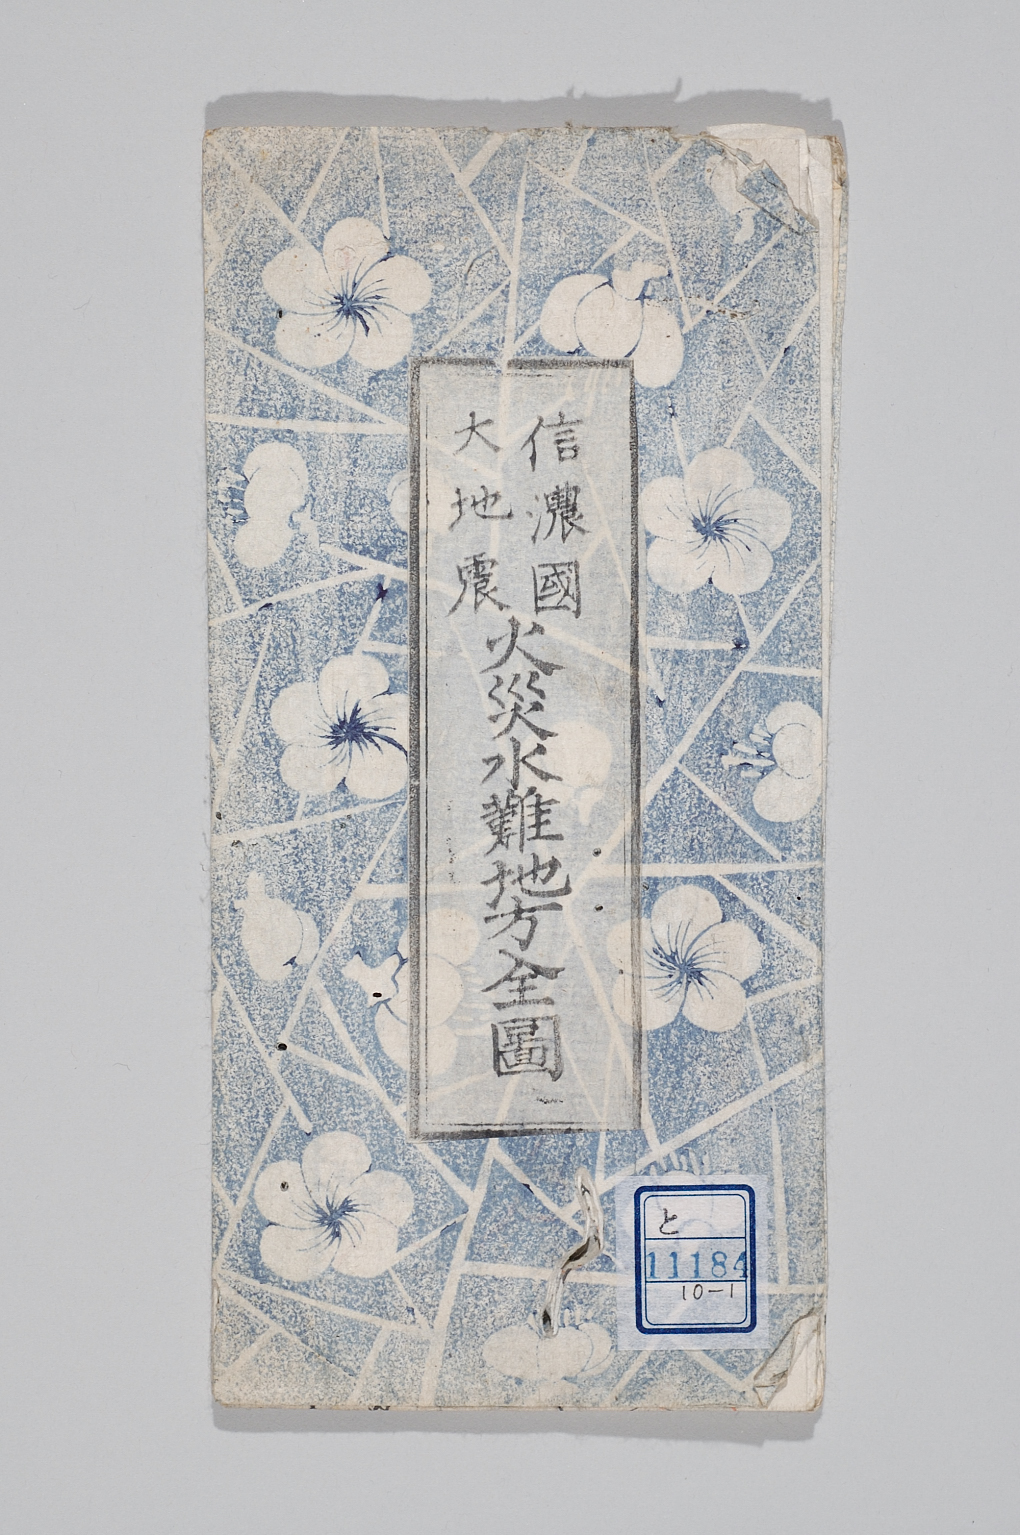 信濃國
大地震
火災水難地方全圖
と
11184
10-1